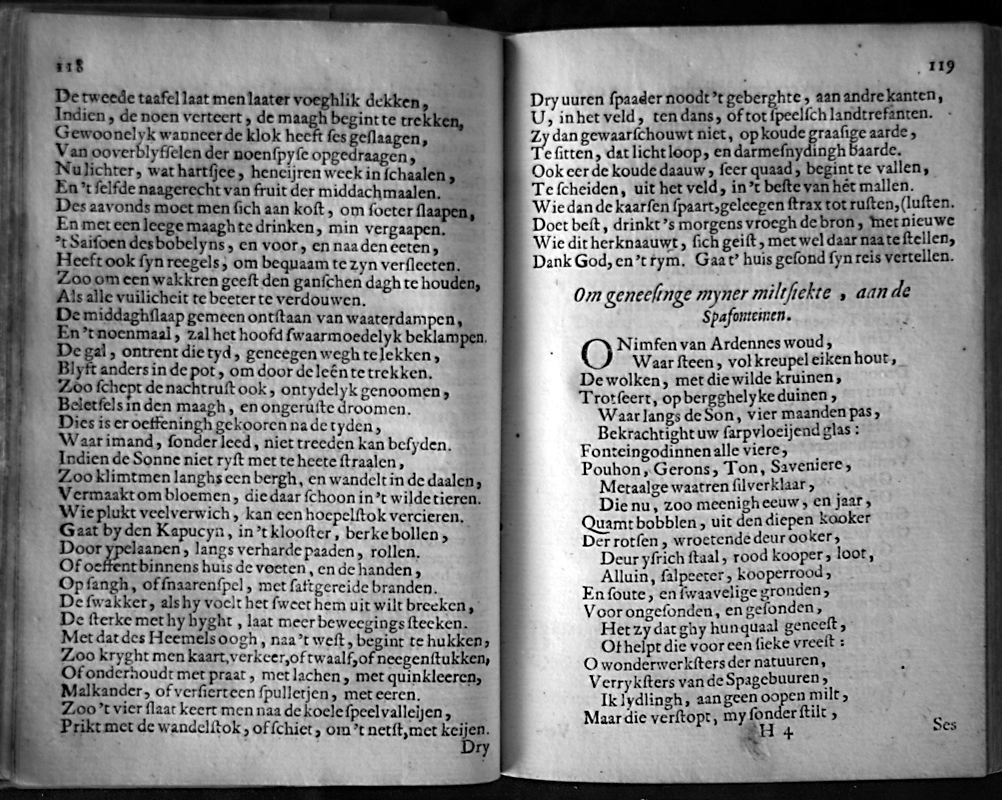 118
De tweede taafel laat men laater voeghlik dekken,
Indien, de noen verteert, de maagh begint te trekken,
Gewoonelyk wanneer de klok heeft ses geslaagen,
Van ooverblyfselen der noenspyse opgedraagen,
Nu lichter, wat hartsjee, heneijren week in schaalen,
En 't selfde naagerecht van fruit der middachmaalen.
Des aavonds moet men sich aan kost, om soeter slaapen,
En met een leege maagh te drinken, min vergaapen.
't Saisoen des bobelyns, en voor, en naa den eeten,
Heeft ook syn reegels, om bequaam te zyn versleeten.
Zoo om een wakkren geest den ganschen dagh te houden,
Als alle vuilicheit te beeter te verdouwen.
De middaghslaap gemeen ontstaan van waaterdampen,
En 't noenmaal, zal het hoofd swaarmoedelyk beklampen.
De gal, ontrent die tyd, geneegen wegh te lekken,
Blyft anders in de pot, om door de leên te trekken.
Zoo schept de nachtrust ook, ontydelyk genoomen,
Beletsels in den maagh, en ongeruste droomen.
Dies is er oeffeningh gekooren na de tyden,
Waar imand, sonder leed, niet treeden kan besyden.
Indien de Sonne niet ryst met te heete straalen,
Zoo klimt men langhs een bergh, en wandelt in de daalen,
Vermaakt om bloemen, die daar schoon in 't wilde tieren.
Wie plukt veelverwich, kan een hoepelstok vercieren.
Gaat by den Kapucyn, in 't klooster, berke bollen,
Door ypelaanen, langs verharde paaden, rollen.
Of oeffent binnens huis de voeten, en de handen,
Op sangh, of snaarenspel, met saftgereide branden.
De swakker, als hy voelt het sweet hem uit wilt breeken,
De sterke met hy hyght, laat meer beweegings steeken.
Met dat des Heemels oogh, naa 't west, begint te hukken,
Zoo kryght men kaart, verkeer, of twaalf, of neegenstukken,
Of onderhoudt met praat, met lachen, met quinkleeren,
Malkander, of versiert een spulletjen, met eeren.
Zoo 't vier slaat keert men naa de koele speelvalleijen,
Prikt met de wandelstok, of schiet, om 't netst, met keijen.
Dry
119
Dry uuren spaader noodt 't geberghte, aan andre kanten,
U, in het veld, ten dans, of tot speelsch landtrefanten.
Zy dan gewaarschouwt niet, op koude graasige aarde,
Te sitten, dat licht loop, en darmesnydingh baarde.
Ook eer de koude daauw, seer quaad, begint te vallen,
Te scheiden, uit het veld, in 't beste van hét mallen.
Wie dan de kaarsen spaart, geleegen strax tot rusten, (lusten.
Doet best, drinkt 's morgens vroegh de bron, met nieuwe
Wie dit herknaauwt, sich geist, met wel daar naa te stellen,
Dank God, en 't rym. Gaa t' huis gesond syn reis vertellen.
Om geneesinge myner miltsiekte, aan de
Spafonteinen.
O Nimfen van Ardennes woud,
Waar steen, vol kreupel eiken hout,
De wolken, met die wilde kruinen,
Trotseert, op bergghelyke duinen,
Waar langs de Son, vier maanden pas,
Bekrachtight uw sarpvloeijend glas:
Fonteingodinnen alle viere,
Pouhon, Gerons, Ton, Saveniere,
Metaalge waatren silverklaar,
Die nu, zoo meenigh eeuw, en jaar,
Quamt bobblen, uit den diepen kooker
Der rotsen, wroetende deur ooker,
Deur ysrich staal, rood kooper, loot,
Alluin, salpeeter, kooperrood,
En soute, en swaavelige gronden,
Voor ongesonden, en gesonden,
Het zy dat ghy hun quaal geneest,
Of helpt die voor een sieke vreest:
O wonderwerksters der natuuren,
Verryksters van de Spagebuuren,
Ik lydlingh, aan geen oopen milt,
Maar die verstopt, my sonder stilt,
H 4
Ses